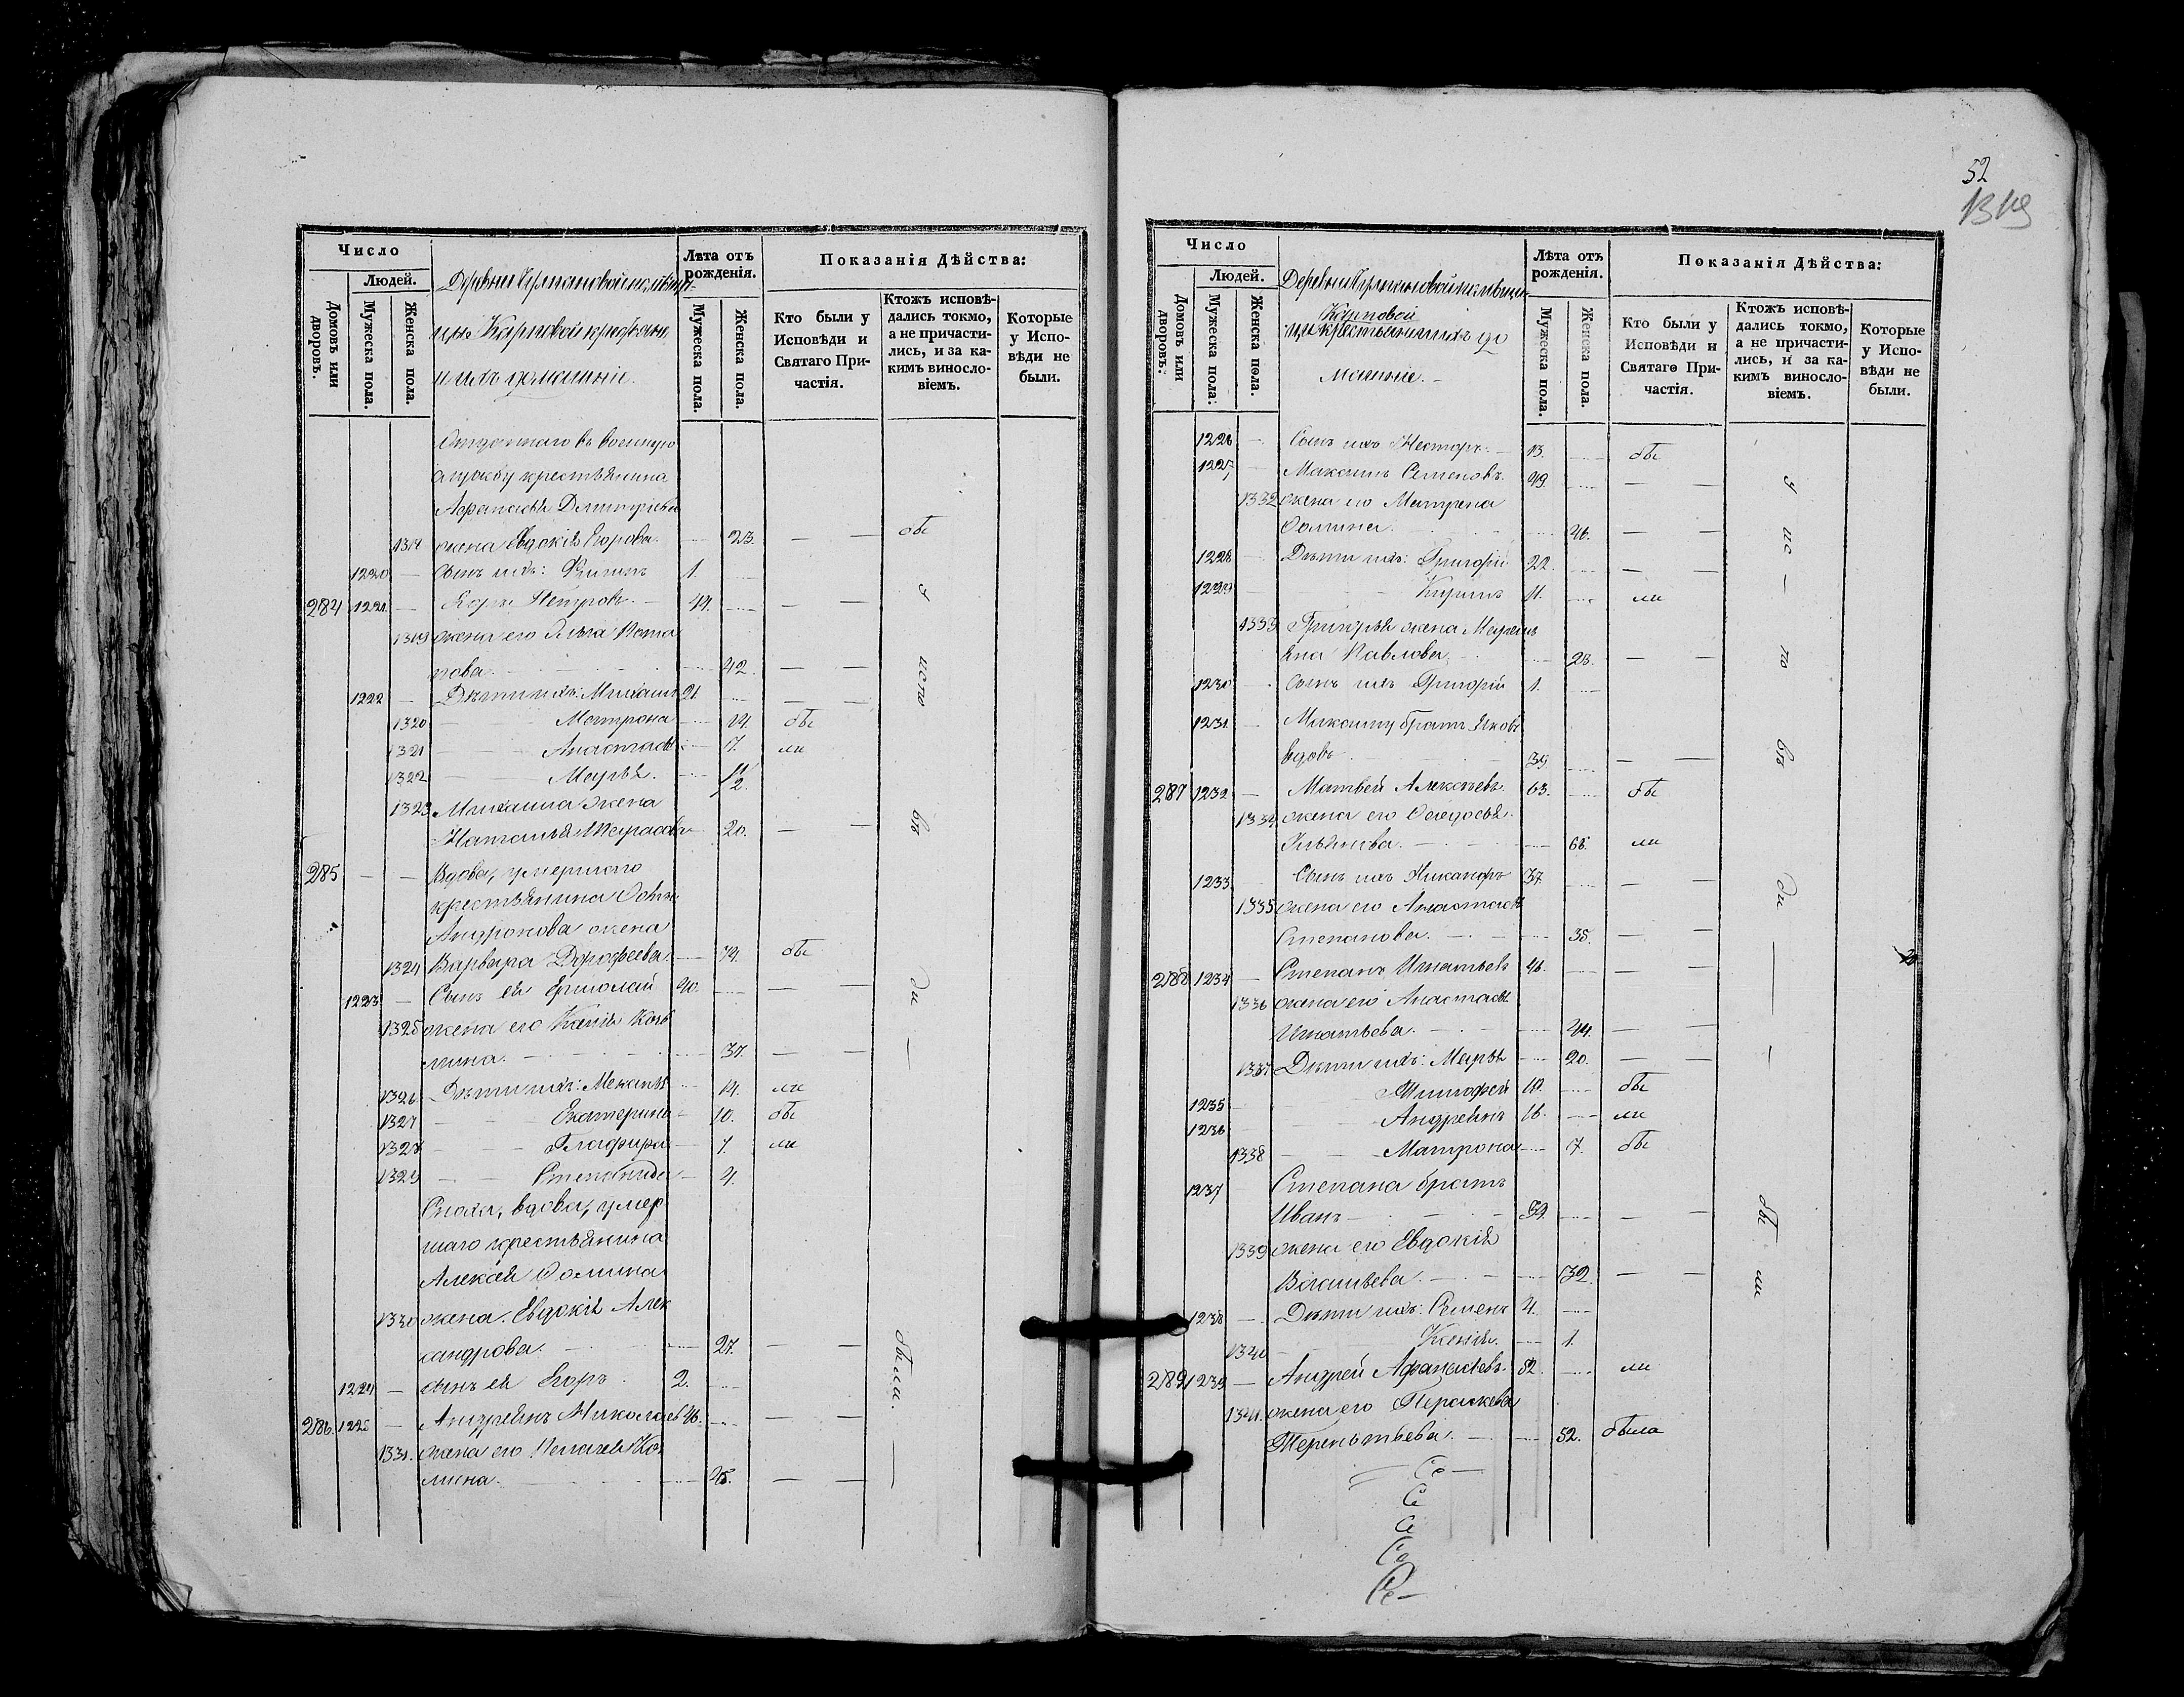 Число
Людей.
Домовъ или дворовъ.
Мужеска пола.
Женска пола.
Деревни
Карповой крестьяне
и ихъ домашніе.
Лѣта отъ рожденія.
Мужеска пола.
Женска пола.
Показанія Дѣйства:
Кто были у Исповѣди и Святаго Причастія.
Ктожъ исповѣдались токмо, а не причастились, и за какимъ винословіемъ.
Которые у Исповѣди не были.
Отданнаго въ военную
службу крестьянина
Афанасья Димитріева
жена Евдокія Егорова. 23. — —
1220 — Сынъ ихъ: 1.
284 1221 — Егоръ Петровъ — 44. — —
1319 жена его Пота
пова. 42. — —
1222 — Дѣти ихъ: Михаилъ 21. — —
1320 Матрона 14. бы
1321 Анастасья 7. ли
1322 Марья. 1/2
1323 Михаила жена
Наталья Тарасова 20. — —
285 — — Вдова, умершаго
крестьянина
Андронова жена
1324 Варвара Дорофеева. 74. бы
1223 — Сынъ ея Ермолай 40. — —
1325 жена его Ксенія Козь
мина. 37. — —
1326 Дѣти ихъ: Меланья 14. ли
1327 Екатерина 10. бы
1328 Глафира 7. ли
1329 Степанида 4.
Сноха, вдова, умер
шаго крестьянина
Алексѣя Фомина
1330 жена Евдокія Алек
сандрова. 27. — —
1224 — сынъ ея Егоръ 2.
286. 1225 — Андреянъ Николаевъ 46. — —
1331. жена его Пелагея
мина. 45. — —
у испо вѣ ди — были. —
52
Число
Людей.
Домовъ или дворовъ.
Мужеска пола.
Женска пола.
Деревни
Карповой
крестьяне и ихъ до
машніе. —
Лѣта отъ рожденія.
Мужеска пола.
Женска пола.
Показанія Дѣйства:
Кто были у Исповѣди и Святаго Причастія.
Ктожъ исповѣдались токмо, а не причастились, и за какимъ винословіемъ.
Которые у Исповѣди не были.
1226 — Сынъ ихъ Несторъ. — 13. бы
1227 — Максимъ Семеновъ. 49. — —
1332 жена его Матрена
Фомина. 46. — —
1228 — Дѣти ихъ: Григорій 22. — —
1229 — Кириллъ 11. ли
1333 Григорья жена Марем
яна Павлова. 23. — —
1230 — Сынъ ихъ Григорій 1.
1231 — Максиму братъ Яковъ
вдовъ 39. — —
287 1232 — Матвей Алексѣевъ. 63. бы
1334 жена его Федосья
Ульянова. 68. ли
1233 Сынъ ихъ Никаноръ 37. — —
1335 жена его Анастасья
Степанова. 35. — —
288 1234 — Степанъ Игнатьевъ 46. — —
1336 жена его Анастасья
Игнатьева. 44. — —
1337 Дѣти ихъ: Марья 20. — —
1235 — Тимофей бы
1236 — Андреянъ 16. ли
1338 — Матрона 7. бы
1237 Степана братъ
Иванъ 39. — —
1339 жена его Евдокія
Васильева. 32. — —
1238 — Дѣти ихъ: Семенъ 4.
1340 Ксенія. 1.
289 1239 — Андрей Афанасьевъ. 52. ли
1341. жена его Параскева
Терентьева. — 52. была
у ис — по вѣ ди — — бы ли